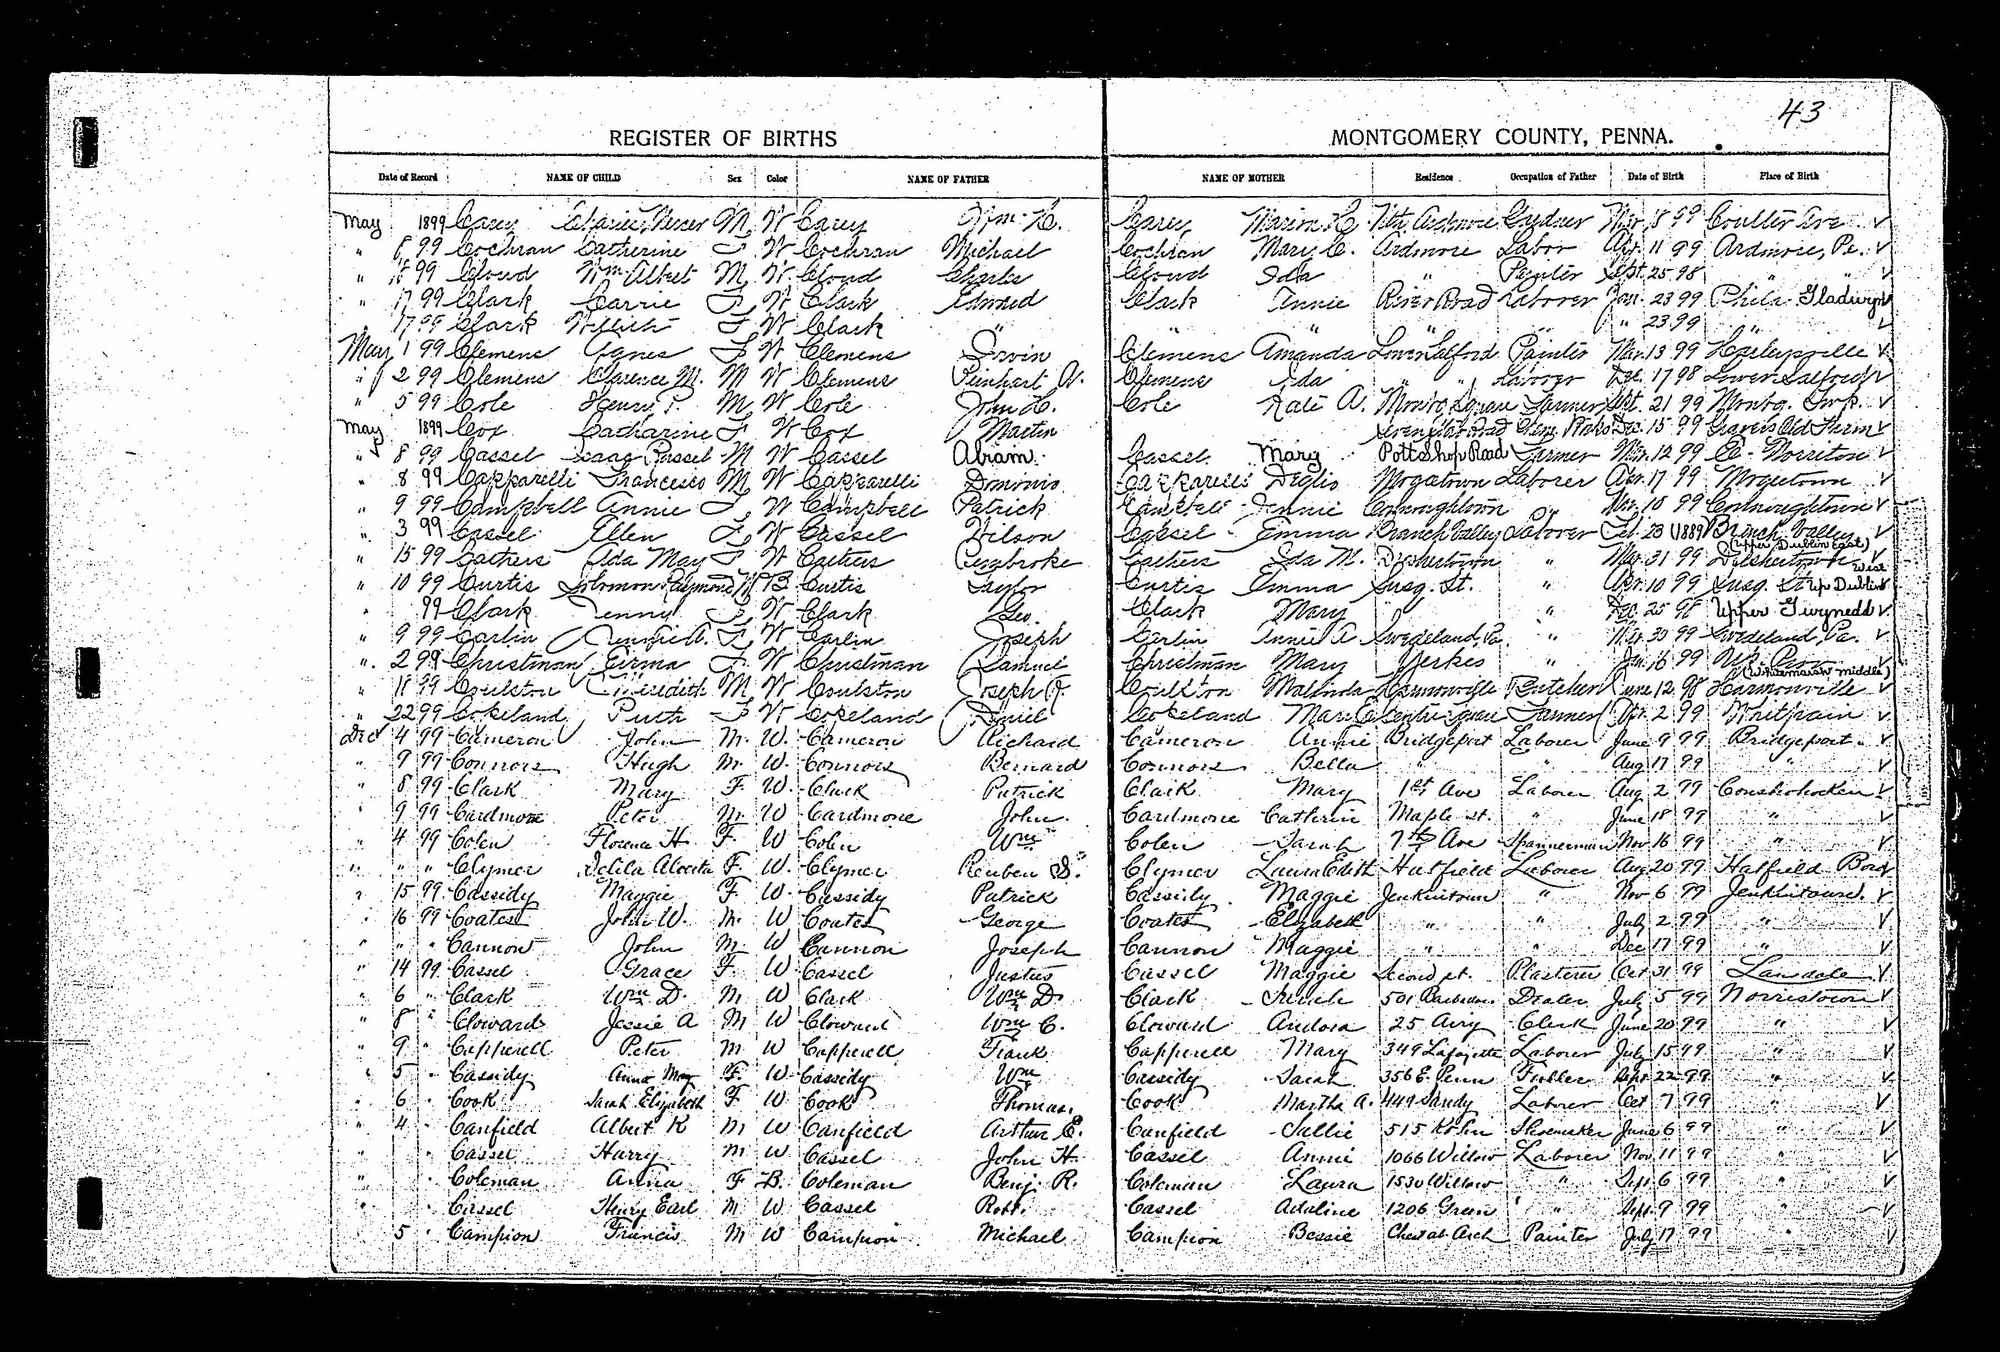 43
REGISTER OF BIRTHS MONTGOMERY COUNTY, PENNA.
Date of Record NAME OF CHILD Sex Color NAME OF FATHER NAME OF MOTHER Residence Occupation of Father Date of Birth Place of Birth
May 1899 Carey Charles Mercer M W Carey Wm. H. Carey Marion H. Ardmore Mar 8 99 Coulter Ave ✓
" 8 99 Cochran Catherine F W Cochran Michael Cochran Mary C. Ardmore Labor Apr 11 99 Ardmore, Pa. ✓
" 18 99 Cloud Wm Albert M W Cloud Charles Cloud Ida " Painter Sept 25 98 " " ✓
" 17 99 Clark Carrie F W Clark Edward Clark Annie River Road Laborer Jan. 23 99 Phila Gladwyn ✓
" 17 99 Clark F W Clark " " " " " " 23 99 " ✓
May 1 99 Clemens Agnes F W Clemens Irvin Clemens Amanda Lower Salford Painter Mar. 13 99 Harleysville ✓
" 2 99 Clemens Clarence M. M W Clemens Reinhart Clemens Ida " " Laborer Dec. 17 98 Lower Salford ✓
" 5 99 Cole Henry P. M W Cole John H. Cole Kate A. Montg. Square Farmer Sept. 21 99 Montg. Twp. ✓
May 1899 Cox Catharine F W Cox Martin Road Dec. 15 99 Old Farm ✓
" 8 99 Cassel Isaac Russel M W Cassel Abram Cassel Mary Potts Shop Road Farmer Mar. 12 99 E. Norriton ✓
" 8 99 Capparelli Francesco M W Capparelli Dominis Capparelli Mogeetown Laborer Apr. 17 99 Mogeetown ✓
" 9 99 Campbell Annie F W Campbell Patrick Campbell Jennie Connoughtown " Mar. 10 99 Connoughtown ✓
" 3 99 Cassel Ellen F W Cassel Wilson Cassel Emma Branch Valley Laborer Feb. 23 (1889) Branch Valley ✓
" 15 99 Cathers Ada May F W Cathers Pembroke Cathers Ida M. " Mar. 31 99 (Upper Dublin East) ✓
" 10 99 Curtis Solomon Raymond M B Curtis Taylor Curtis Emma Susq. St. " Apr. 10 99 Susq. St Up Dublin West ✓
" 99 Clark Jenny F W Clark Geo. Clark Mary " Dec. 25 98 Upper Gwynedd ✓
" 9 99 Carlin Jennie A. F W Carlin Joseph Carlin Annie A Swedeland, Pa. " Mar. 30 99 Swedeland, Pa. ✓
" 2 99 Christman Firma F W Christman Samuel Christman Mary Yerkes " Jan. 16 99 Up. Prov ✓
" 18 99 Coulston Meredith M W Coulston Joseph Coulston Malinda Harmonville Butcher June 12 98 Harmonville (Whitemarsh middle) ✓
" 22 99 Copeland Ruth F W Copeland Daniel Copeland Mary E. Centre Square Farmer Apr. 2 99 Whitpain ✓
Dec 4 99 Cameron John M. W. Cameron Richard Cameron Annie Bridgeport Laborer June 9 99 Bridgeport ✓
" 9 99 Connors Hugh M. W. Connors Bernard Connors Bella " " Aug 17 99 " ✓
" 8 99 Clark Mary F W. Clark Patrick Clark Mary 1st Ave Laborer Aug 2 99 Conshohocken ✓
" 9 99 Cardmone Peter M. W Cardmone John Cardmone Catherin Maple St. " June 18 99 " ✓
" 4 99 Colen Florence H F. W Colen Wm Colen Sarah 7th Ave Spannerman Nov 16 99 " ✓
" " " Clymer Delila Alverta F. W. Clymer Reuben S. Clymer Laura Edith Hatfield Laborer Aug 20 99 Hatfield Boro ✓
" 15 99 Cassidy Maggie F W. Cassidy Patrick Cassidy Maggie Jenkintown " Nov 6 99 Jenkintown ✓
" 16 99 Coates John W. M. W Coates George Coates Elizabeth " " July 2 99 " ✓
" " " Cannon John M. W Cannon Joseph Cannon Maggie " " Dec 17 99 " ✓
" 14 99 Cassel Grace F. W Cassel Justus Cassel Maggie Second st. Plasterer Oct 31 99 Lansdale ✓
" 6 " Clark Wm D. M W Clark Wm D. Clark 501 Dealer July 5 99 Norristown ✓
" 8 " Cloward Jessie A M W Cloward Wm C. Cloward Andora 25 Airy Clerk June 20 99 " ✓
" 9 " Capperell Peter M W Capperell Frank Capperell Mary 349 Lafayette Laborer July 15 99 " ✓
" 5 " Cassidy Anna May F. W Cassidy Wm Cassidy Sarah 356 E. Penn Sept 22 99 " ✓
" 6 " Cook Sarah Elizabeth F W Cook Thomas Cook Martha A. 449 Sandy Laborer Oct 7 99 " ✓
" 4 " Canfield Albert K M W Canfield Arthur E. Canfield Sallie 515 Kohn Shoemaker June 6 99 " ✓
" " Cassel Harry M W Cassel John H. Cassel Annie 1066 Willow Laborer Nov 11 99 " ✓
" " Coleman Anna F B. Coleman Benj. R. Coleman Laura 1530 Willow " Sept 6 99 " ✓
" " Cassel Henry Earl M W Cassel Robt. Cassel Adaline 1206 Green " Sept 9 99 " ✓
" 5 " Campion Francis M W Campion Michael Campion Bessie Chest ab. Arch Painter July 17 99 " ✓